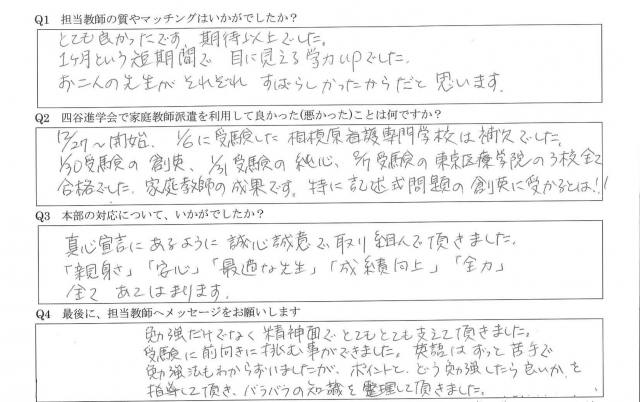 Q1 担当教師の質やマッチングはいかがでしたか?
とても良かったです。期待以上でした。
1ヶ月という短期間で 目に見える学力upでした。
お二人の先生が それぞれ すばらしかったからだと 思います。
Q2 四谷進学会で家庭教師派遣を利用して良かった(悪かった)ことは何ですか?
12/27〜開始、1/6に受験した 相模原看護専門学校は補欠でした。
1/30受験の 創英、1/31受験の 純心、2/1受験の 東京医療学院の 3校全て
合格でした。家庭教師の成果です。特に 記述式問題の 創英に受かるとは!!
Q3 本部の対応について、いかがでしたか?
真心宣言にあるように 誠心誠意で 取り組んで頂きました。
「親身さ」「安心」「最適な先生」「成績向上」「全力」
全て あてはまります。
Q4 最後に、担当教師へメッセージをお願いします
勉強だけでなく 精神面で とてもとても支えて頂きました。
受験に前向きに 挑む事ができました。英語は ずっと苦手で
勉強法もわからずいましたが、ポイントと、どう勉強したら良いか、を
指導して頂き、バラバラの知識を 整理して頂きました。